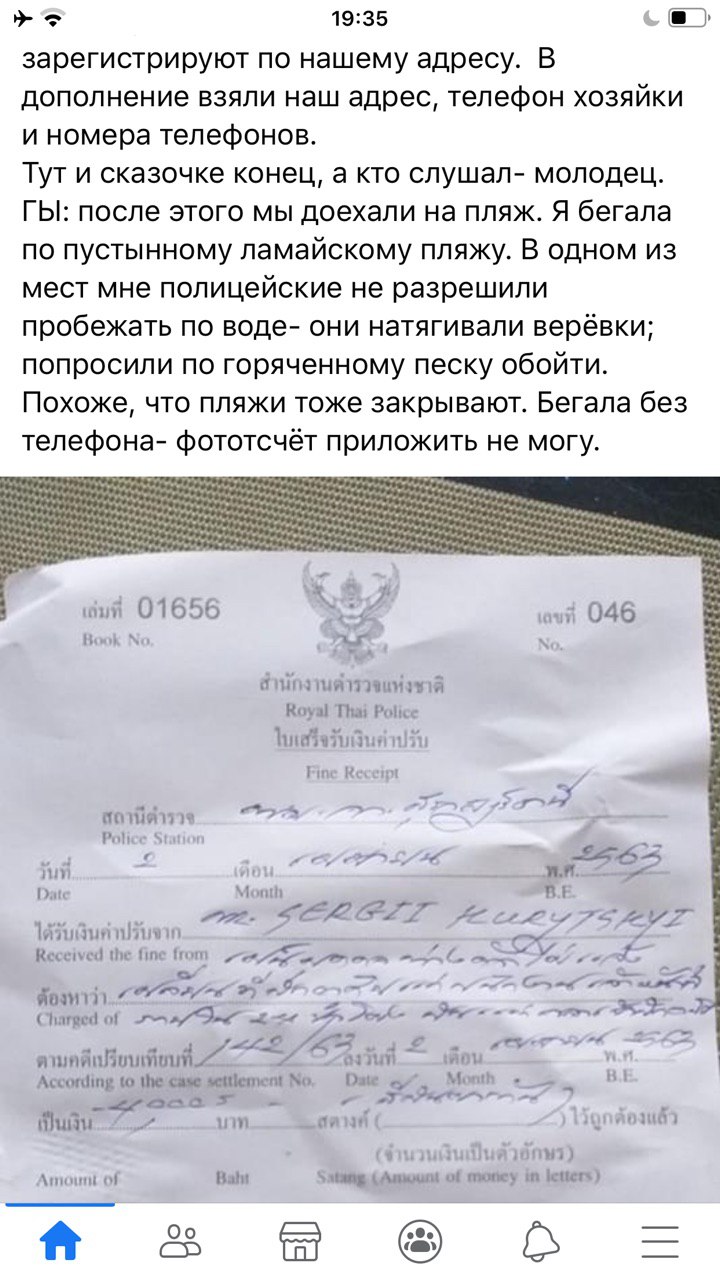 19:35
зарегистрируют по нашему адресу.  В
дополнение взяли наш адрес, телефон хозяйки
и номера телефонов.
Тут и сказочке конец, а кто слушал- молодец.
ГЫ: после этого мы доехали на пляж. Я бегала
по пустынному ламайскому пляжу. В одном из
мест мне полицейские не разрешили
пробежать по воде- они натягивали верёвки;
попросили по горяченному песку обойти.
Похоже, что пляжи тоже закрывают. Бегала без
телефона- фототсчёт приложить не могу.
เล่มที่ 01656 เลขที่ 046
Book No. No.
สำนักงานตำรวจแห่งชาติ
Royal Thai Police
ใบเสร็จรับเงินค่าปรับ
Fine Receipt
สถานีตำรวจ
Police Station
วันที่ 2 เดือน เมษายน พ.ศ. 2563
Date Month B.E.
ได้รับเงินค่าปรับจาก M. SERGII KURYTSKYI
Received the fine from
ต้องหาว่า
Charged of
ตามคดีเปรียบเทียบที่ 142/63 ลงวันที่ 2 เดือน เมษายน พ.ศ. 2563
According to the case settlement No. Date Month B.E.
เป็นเงิน บาท สตางค์ ( ) ไว้ถูกต้องแล้ว
(จำนวนเงินเป็นตัวอักษร)
Amount of Baht Satang (Amount of money in letters)